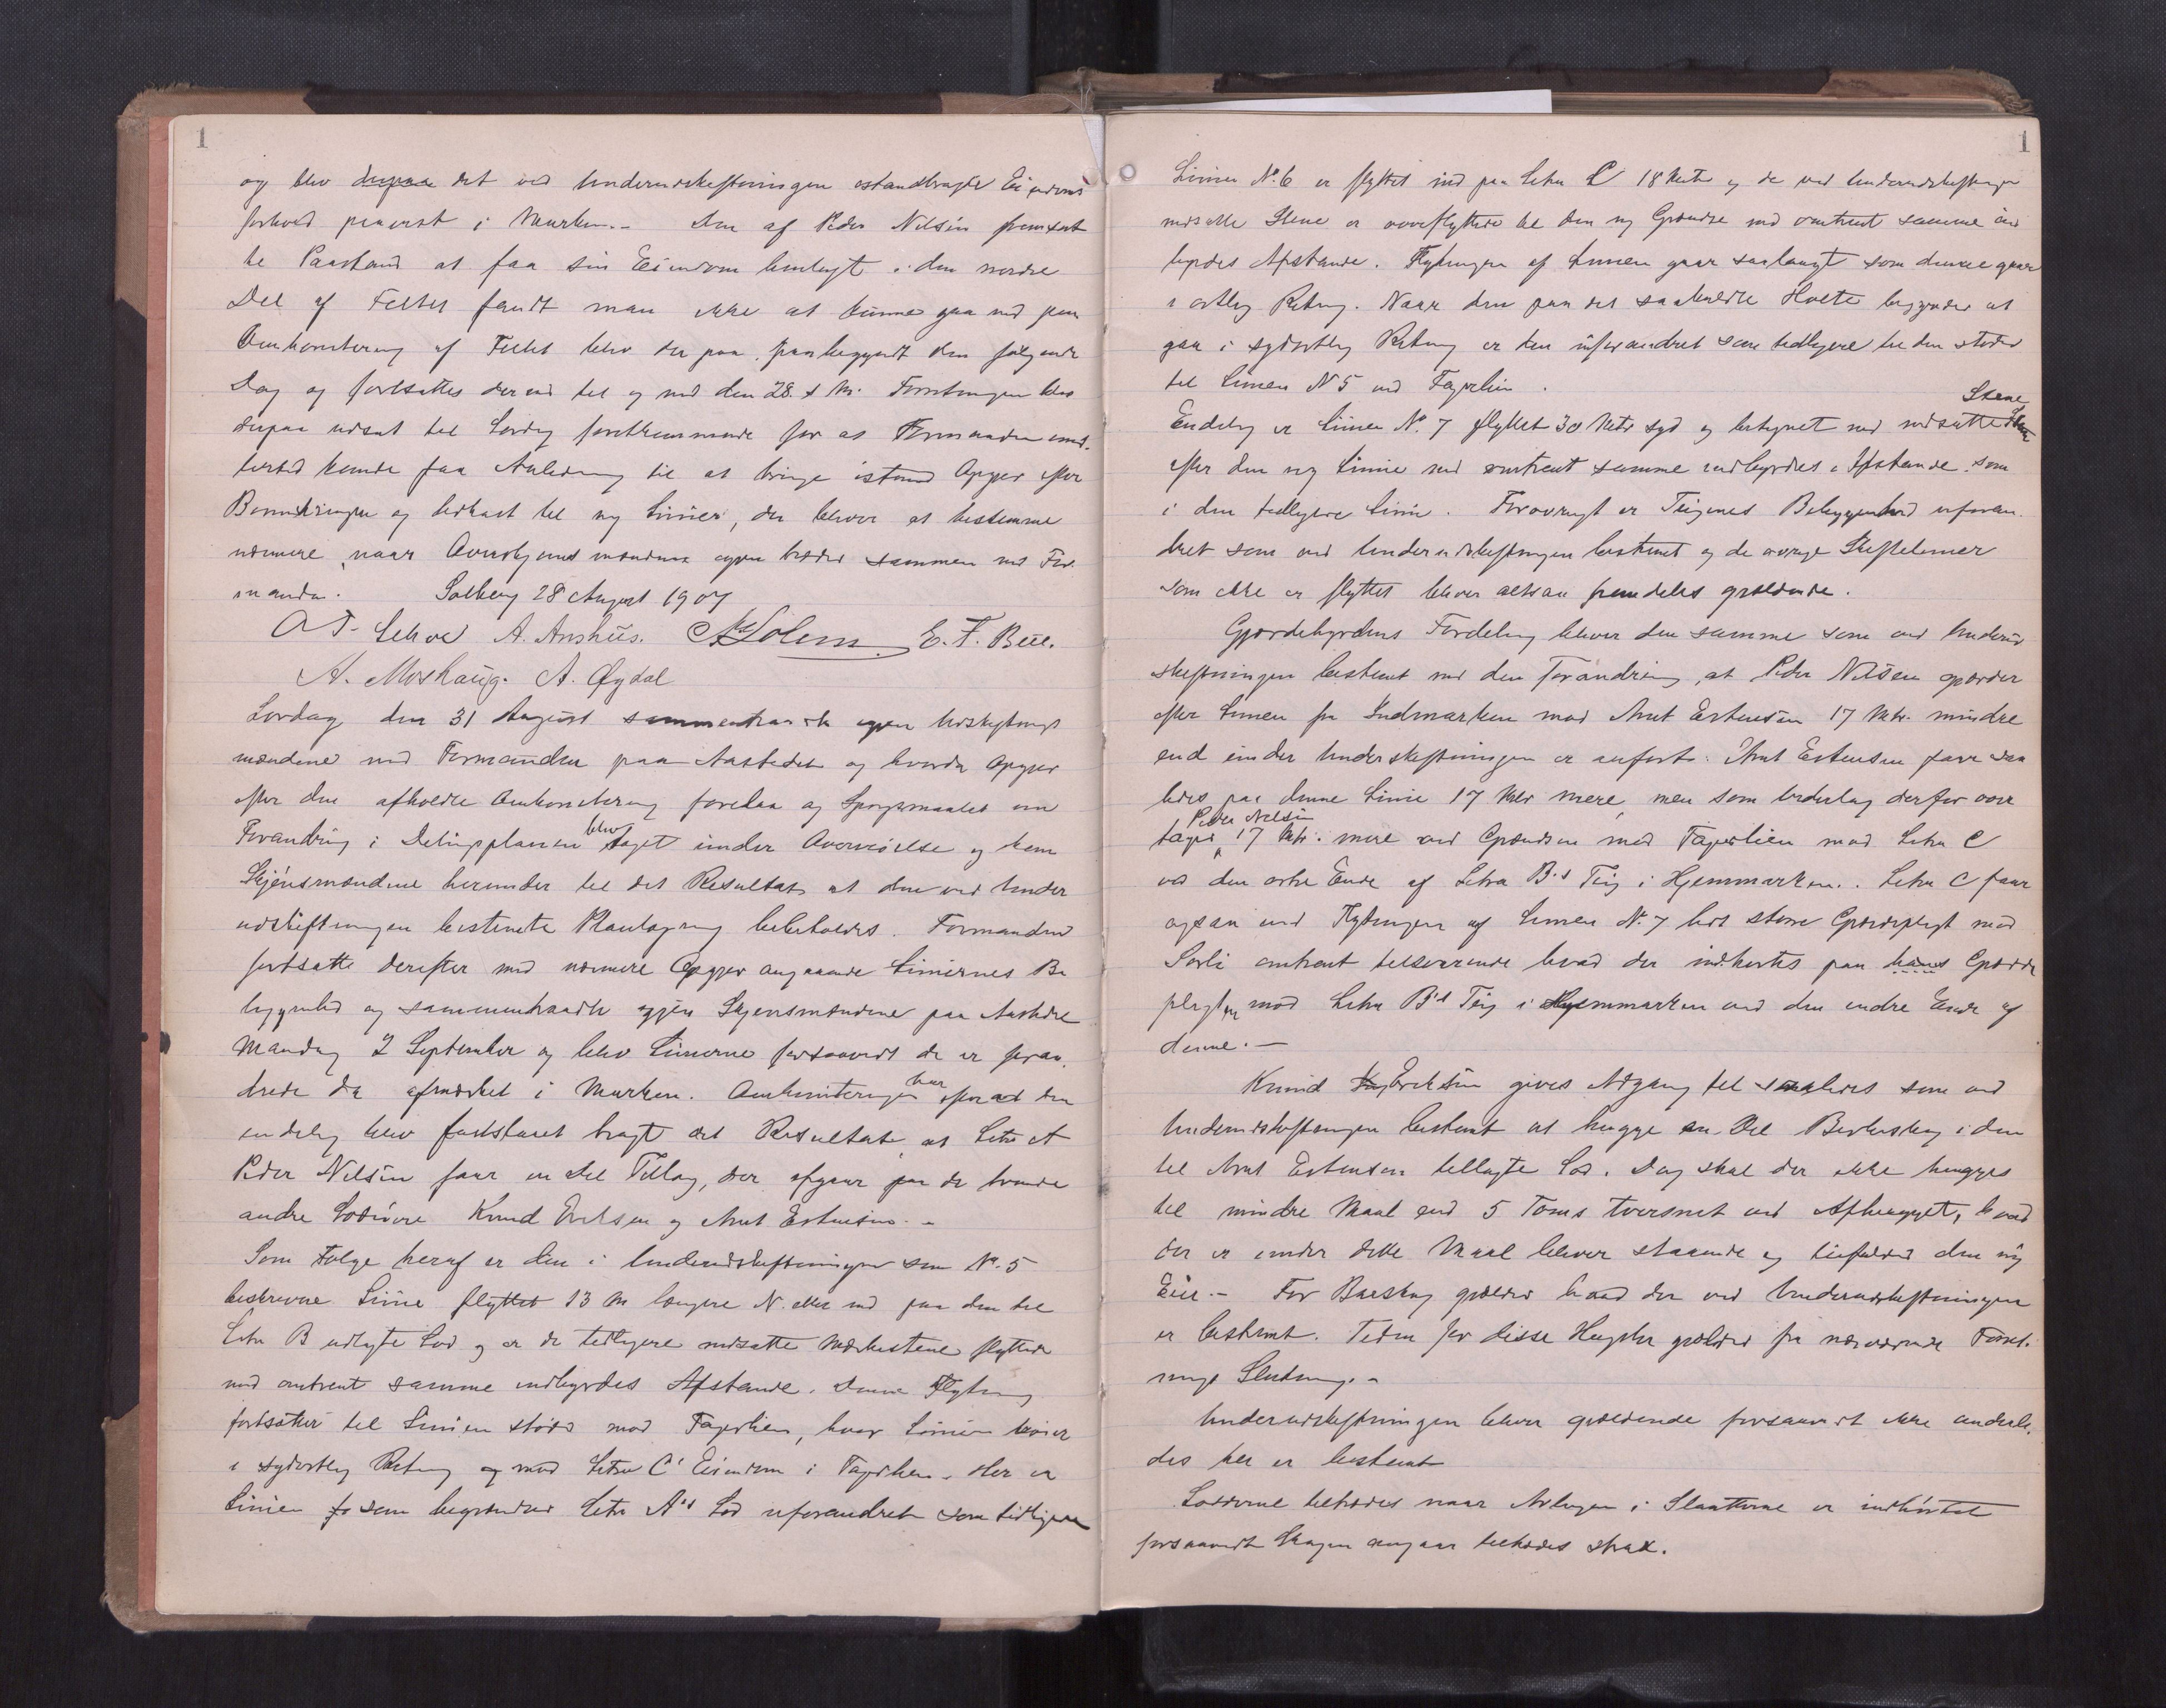 1
og blev derpaa det ved Underudskiftningen istandbragte Eiendoms
forhold paavist i Marken. - Den af Peder Nilsen fremsat
te Paastand at faa sin Eiendom henlagt i den nordre
Del af Feltet fandt man ikke at kunne gaa med paa
Omkonitering af Feltet blev der paa paabegyndt den følgende
Dag og fortsattes der med til og med den 28. d. M. Forretningen blev
derpaa udsat til Lørdag førstkommende for at Formanden imid-
lertid kunde faa Anledning til at bringe istand Opgjør efter
Boniteringen og Udkast til ny Linier, der bliver at bestemme
nærmere, naar Overskjønsmændene igjen træder sammen med For-
manden. Solberg 28 August 1907
O T. Lehve A. Aashus. A Solem E. T. Bell.
A. Moshaug. A. Øydal
Lørdag den 31 August sammentraadte igjen Udskiftnings
mændene med Formanden paa Aastedet og hvorda Opgjør
efter den afholdte Omkonitering forelaa og Spørgsmaalet om
Forandring i Delingsplanen blev taget under Overveielse og kom
Skjønsmændene herunder til det Resultat at den ved Under
udskiftningen bestemte Planlægning bibeholdes. Formanden
fortsatte derefter med nærmere Opgjør angaaende Liniernes Be
liggenhed og sammentraadte igjen Skjønsmændene paa Aastedet
Mandag 2 September og blev Linierne forsaavidt de er foran-
drede da afmærket i Marken. Omkoniteringen har efter at den
endelig blev fastslaaet bragt det Resultat, at Litr A
Peder Nilsen faar en Del Tillæg, der afgaar paa de tvende
andre Lodeiere Knud Eriksen og Arnt Estensen. -
Som Følge heraf er den i Underudskiftningen som N. 5
beskrevne Linie flyttet 13 M længere N. eller ind paa den til
Litr B udlagte Lod og er de tidligere nedsatte Mærkestene flyttede
med omtrent samme indbyrdes Afstande. Denne Flytning
fortsætter til Linien støder mod Fagerlien, hvor Linien bøier
i sydøstlig Retning og mod Litra C' Eiendom i Fagerlien. Her er
Linien fo som begrændser Litr A's Lod uforandret som tidligere
1
Linien N. 6 er flyttet ind paa Litra C 18 Meter og de ved Underudskiftningen
nedsatte Stene er overflyttede til den ny Grændse med omtrent samme ind
byrdes Afstande. Flytningen af Linien gaar saalangt som denne gaar
i østlig Retning. Naar den paa det saakaldte Holte begynder at
gaa i sydøstlig Retning er den uforandret som tidligere til den støder
til Linien N 5 ved Fagerlien.
Endelig er Linien N. 7 flyttet 30 Meter syd og betegnet med nedsatte Stene
efter den ny Linie med omtrent samme indbyrdes Afstande som
i den tidligere Linie. Forøvrigt er Teigenes Beliggenhed uforan-
dret som ved Underudskiftningen bestemt og de øvrige Skiftelinier
som ikke er flyttet bliver altsaa fremdeles gjældende.
Gjærdebyrdens Fordeling bliver den samme som ved Underud
skiftningen bestemt med den Forandring, at Peder Nilsen gjærder
efter Linien fra Indmarken mod Arnt Estensen 17 Mtr. mindre
end under Underskiftningen er anført. Arnt Estensen faar saa
ledes paa denne Linie 17 Mtr mere, men som Vederlag derfor over
tager Peder Nilsen 17 Mtr. mere ved Grændsen med Fagerlien mod Litra C
ved den østre Ende af Litra B's Teig i Hjemmarken. Litra C faar
ogsaa ved Flytningen af Linien N. 7 lidt større Gjærdepligt mod
Sørli omtrent tilsvarende hvad der indkortes paa hans Gjærde
pligten mod Litra B's Teig i Hjemmarken ved den indre Ende af
denne. -
Knud Eriksen gives Adgang til saaledes som ved
Underudskiftningen bestemt at hugge en Del Birkeskog i den
til Arnt Estensen tillagte Lod. Dog skal der ikke hugges
til mindre Maal end 5 Toms Tversnit ved Afhugget, hvad
der er under dette Maal bliver staaende og tilfalder den ny
Eier. - For Barskog gjælder hvad der ved Underudskiftningen
er bestemt. Tiden for disse Hugster gjælder fra nærværende Forret-
nings Slutning. -
Underudskiftningen bliver gjældende forsaavidt ikke anderle-
des her er bestemt
Lodderne tiltrædes naar Avlingen i Slaatterne er indhøstet
forsaavidt Skogen angaar tiltrædes strax.